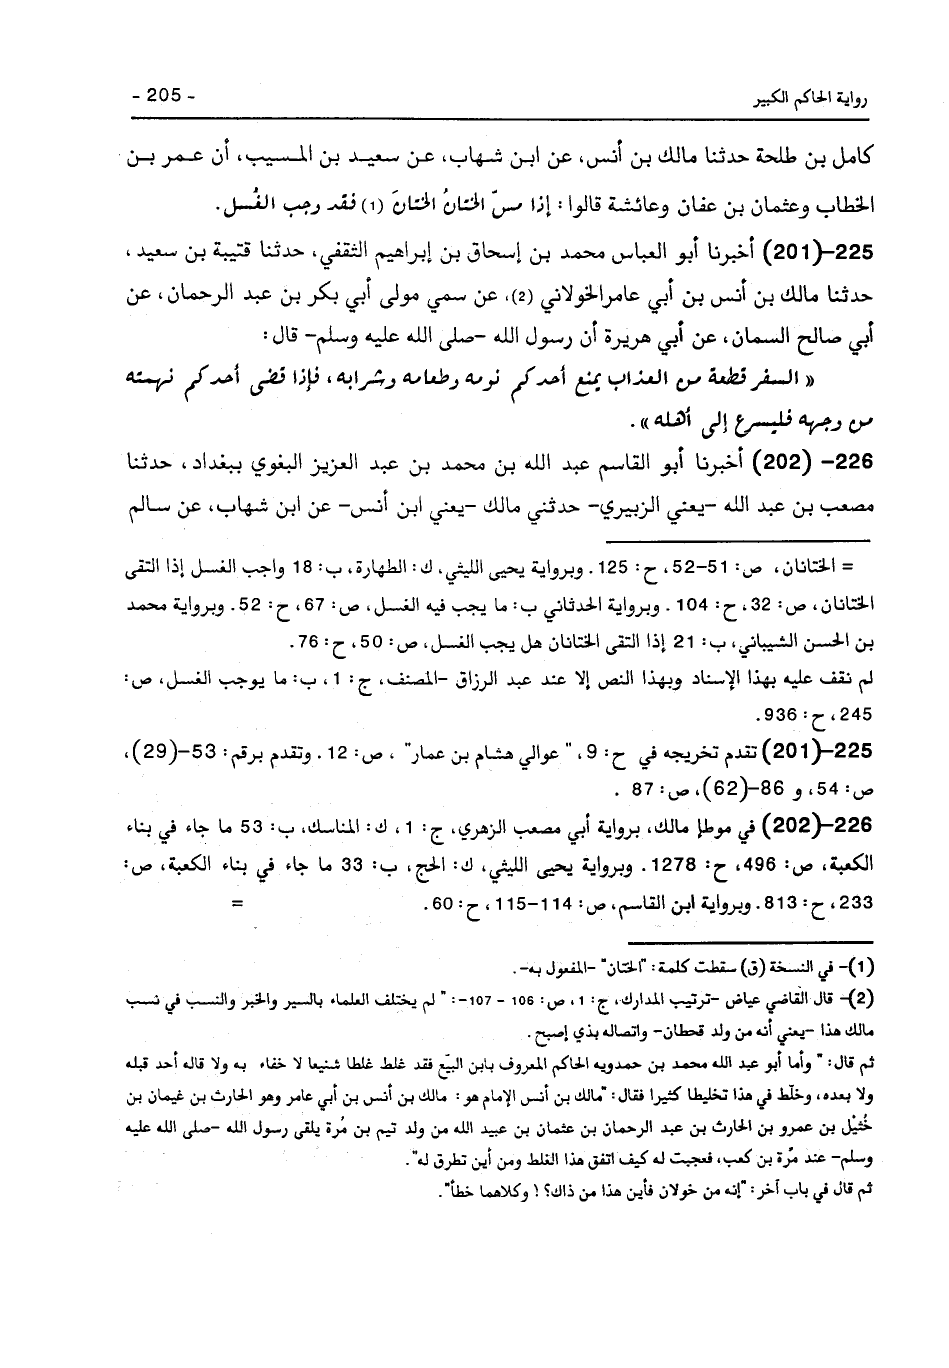 رواية الحاكم الكبير - 205 -
كامل بن طلحة حدثنا مالك بن أنس، عن ابن شهاب، عن سعيد بن المسيب، أن عمر بن
الخطاب وعثمان بن عفان وعائشة قالوا : إذا مسّ الختانُ الختانَ (1) فقد رجب الغُسل.
225–(201) أخبرنا أبو العباس محمد بن إسحاق بن إبراهيم الثقفي، حدثنا قتيبة بن سعيد ،
حدثنا مالك بن أنس بن أبي عامرالخولاني (2)، عن سمي مولى أبي بكر بن عبد الرحمان ، عن
أبي صالح السمان، عن أبي هريرة أن رسول الله –صلى الله عليه وسلم– قال :
« السفر قطعة من العذاب يمنع أحدكم نومه وطعامه وشرابه، فإذا قضى أحدكم نهمته
من وجهه فليسرع إلى أهله» .
226– (202) أخبرنا أبو القاسم عبد الله بن محمد بن عبد العزيز البغوي ببغداد، حدثنا
مصعب بن عبد الله –يعني الزبيري– حدثني مالك –يعني ابن أنس– عن ابن شهاب، عن سالم
= الختانان، ص: 51–52، ح: 125. وبرواية يحيى الليثي، ك: الطهارة، ب: 18 واجب الغسل إذا التقى
الختانان، ص: 32، ح: 104 . وبرواية الحدثاني ب: ما يجب فيه الغسل، ص: 67، ح: 52. وبرواية محمد
بن الحسن الشيباني، ب: 21 إذا التقى الختانان هل يجب الغسل، ص: 50، ح: 76.
لم نقف عليه بهذا الإسناد وبهذا النص إلا عند عبد الرزاق –المصنف، ج: 1، ب: ما يوجب الغسل، ص:
245، ح: 936.
225–(201) تقدم تخريجه في ح: 9، " عوالي هشام بن عمار" ، ص: 12. وتقدم برقم: 53–(29)،
ص: 54، و 86–(62)، ص: 87 .
226–(202) في موطإ مالك، برواية أبي مصعب الزهري، ج: 1، ك: المناسك، ب: 53 ما جاء في بناء
الكعبة، ص: 496، ح: 1278. وبرواية يحيى الليثي، ك: الحج، ب: 33 ما جاء في بناء الكعبة، ص:
233، ح: 813. وبرواية ابن القاسم، ص: 114–115، ح: 60. =
(1)– في النسخة (ق) سقطت كلمة : "الختان" –المفعول به–.
(2)– قال القاضي عياض –ترتيب المدارك، ج: 1، ص: 106 – 107–: " لم يختلف العلماء بالسير والخبر والنسب في نسب
مالك هذا –يعني أنه من ولد قحطان– واتصاله بذي إصبح .
ثم قال: " وأما أبو عبد الله محمد بن حمدويه الحاكم المعروف بابن البيّع فقد غلط غلطا شنيعا لا خفاء به ولا قاله أحد قبله
ولا بعده، وخلّط في هذا تخليطا كثيرا فقال: "مالك بن أنس الإمام هو : مالك بن أنس بن أبي عامر وهو الحارث بن غيمان بن
خُثيْل بن عمرو بن الحارث بن عبد الرحمان بن عثمان بن عبيد الله من ولد تيم بن مُرة يلقى رسول الله –صلى الله عليه
وسلم– عند مُرة بن كعب، فعجبت له كيف اتفق هذا الغلط ومن أين تطرق له".
ثم قال في باب آخر : "إنه من خولان فأين هذا من ذاك؟ ! وكلاهما خطأ".